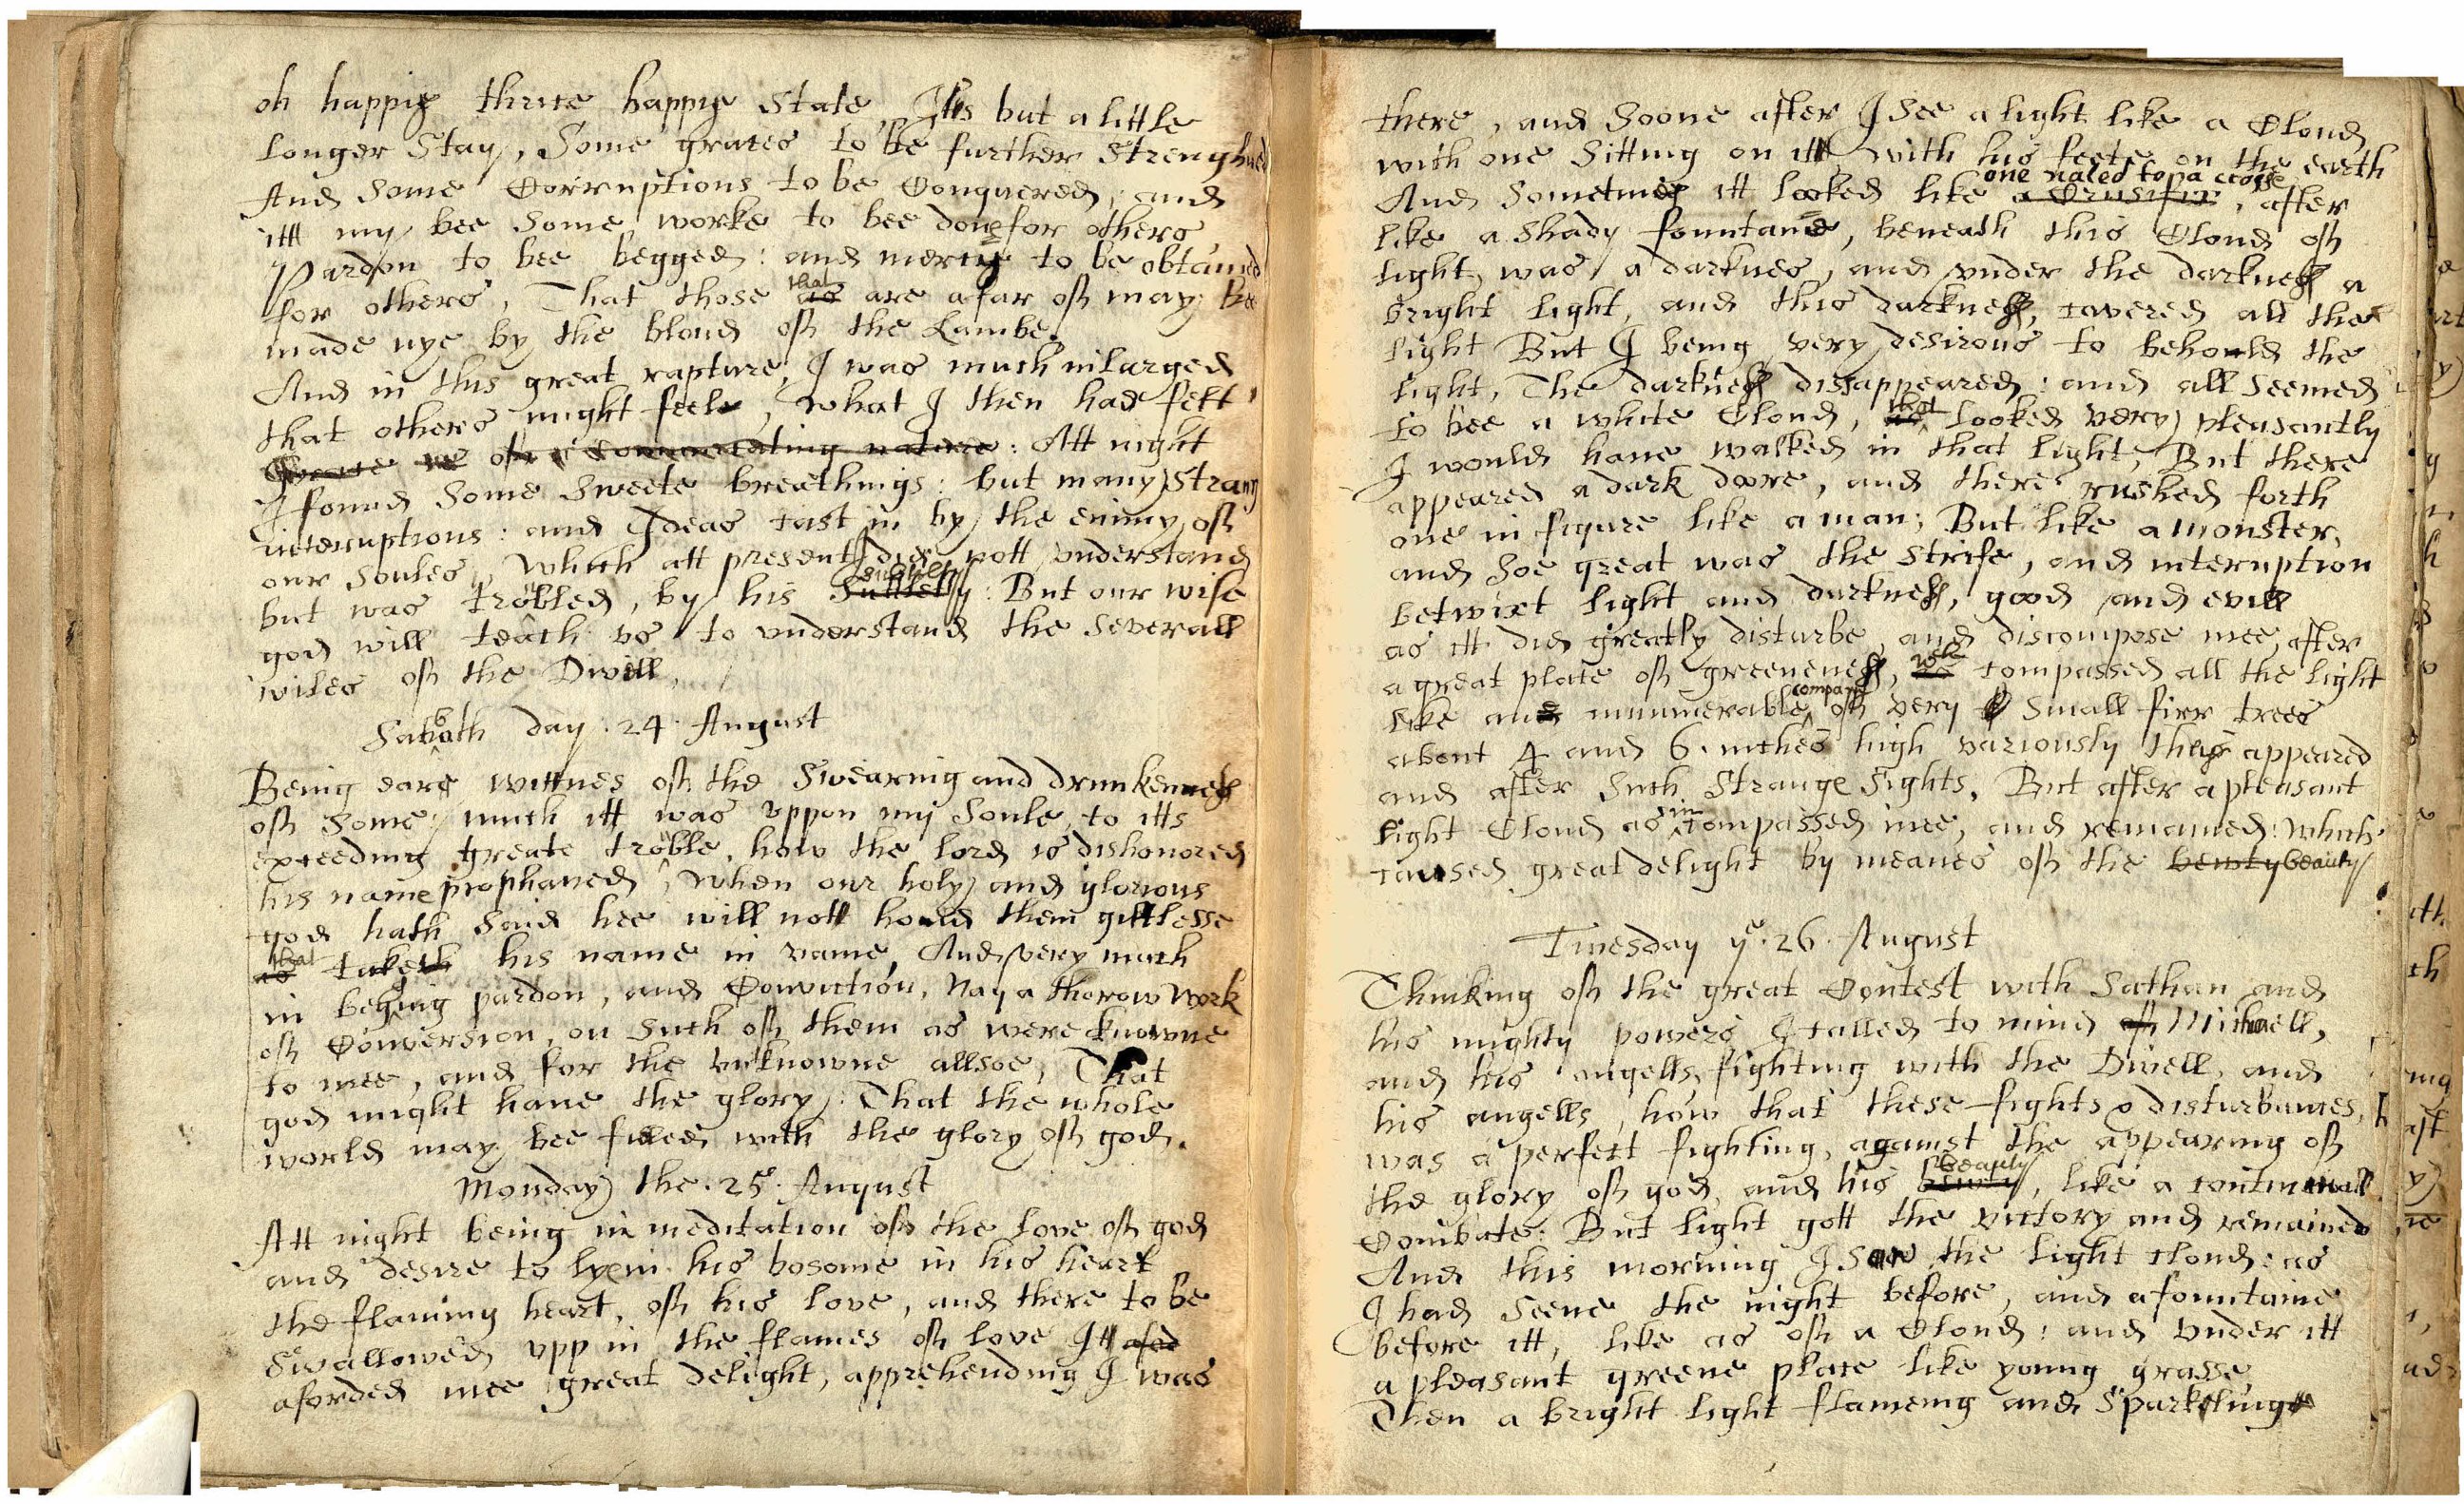 oh happie thrice happye State, Itts but a little
longer Stay, Some graces to be further Strengthned
And some Corruptions to be Conquered; and
itt my bee some worke to bee done for others
Pardon to bee begged: and mercy to be obtained
for others, That those that are afar off may bee
made nye by the bloud off the Lambe.
And in this great rapture, I was much inlarged
that others might feele, what I then had felt
: Att night
I found some sweete breathings: but many Strang
interuptions: and Ideas cast in by the enimy off
our soules, Which att present I did nott vnderstand
but was trobled, by his Subtlety: But our wise
god will teach vs to vnderstand the Severall
wiles off the Divell,
Sabbath day . 24 . August
Being eare wittnes off the Swearing and drunkenness
off some; much itt was vppon my Soule, to itts
exceeding greate troble, how the lord is dishonored
his name prophaned, When our holy and glorious
god hath said hee will nott hould them giltlesse
that take his name in vaine, And very much
in beging pardon, and Conviction, Nay a thorow Work
off Conversion, on such off them as were knowne
to mee, and for the vnknowne allsoe, That
god might haue the glory: That the whole
world may bee filled with the glory off god.
Monday the . 25 . August
Att night being in meditation off the love off god
and desire to lye in his bosome in his heart
the flaming heart, off his love, and there to be
Swallowed vpp in the flames off love Itt
aforded mee great delight, apprehending I was
there, and Soone after I see a light like a Cloud
with one Sitting on itt with his feete on the earth
And Sometimes itt looked like one naled to a crosse, after
like a shady fountaine, beneath this Cloud off
light, was a darknes, and vnder the darkness a
bright light, and this darkness, covered all the
light But I being very desirous to behould the
light, The darkness dissappeared: and all seemed
to bee a white Cloud, that looked very pleasantly
I would haue walked in that light, But there
appeared a dark doore, and there rushed forth
one in figure like a man; But like a monster,
and soe great was the strife, and interuption
betwixt light and darkness, good and evill
as itt did greatly disturbe, and discompose mee, after
a great place off greeneness, wch compassed all the light
like an innumerable company off very small firr trees
about 4 and 6 . inches high variously they appeared
and after such Strange Sights, But after a pleasant
light Cloud as in compassed mee, and remained: which
caused great delight by meanes off the beauty
Tuesday ye . 26 . August
Thinking off the great Contest with Sathan and
his mighty powers I called to mind Michaell,
and his angells, fighting with the Divell, and
his angells, how that these fights & disturbances,
was a perfect fighting, against the appearing off
the glory off god, and his beauty, like a continuall
Combate: But light gott the victory and remained
And this morning I saw the light cloud: as
I had seene the night before, and a fountaine
before itt, like as off a Cloud: and vnder itt
a pleasant greene place like young grasse
Then a bright light flameing and Sparkling